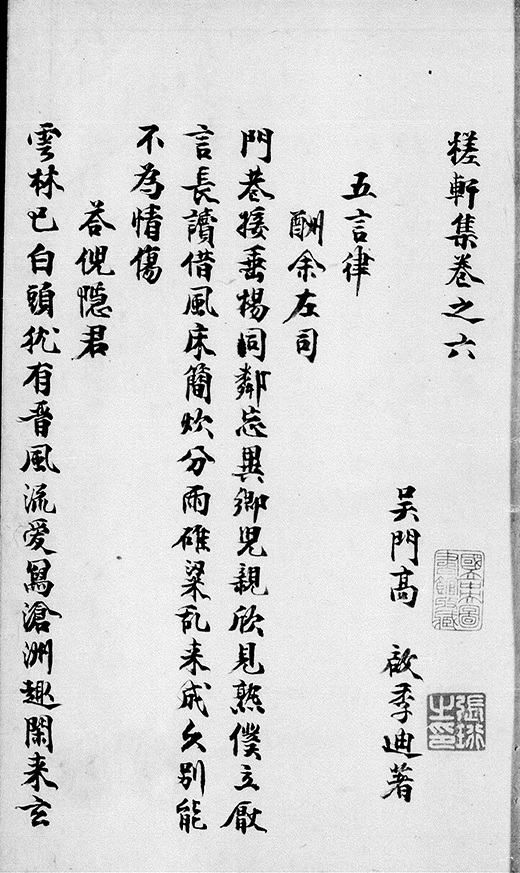 槎軒集卷之六
吳門高 啟季迪著
國立中央圖書館收藏
五言律
酬余左司
門巷接垂楊同鄰忘異鄉兒親欣見熟僕立厭
言長讀借風床簡炊分雨碓粱乱来成久别能
不為情傷
荅倪隠君
雲林已白頭犹有晉風流愛寫滄洲趣閑来玄